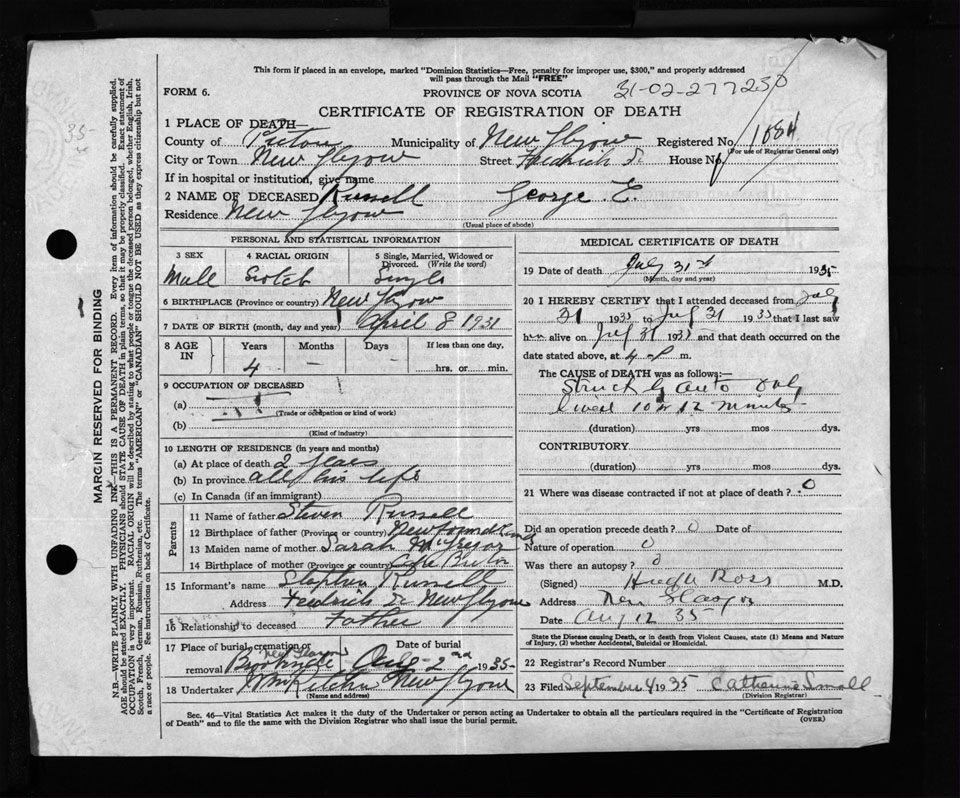 This form if placed in an envelope, marked "Dominion Statistics—Free, penalty for improper use, $300," and properly addressed
will pass through the Mail "FREE"
FORM 6. PROVINCE OF NOVA SCOTIA 31-02-277230
CERTIFICATE OF REGISTRATION OF DEATH
1 PLACE OF DEATH—
County of Pictou Municipality of New Glasgow Registered No. 1884
(For use of Registrar General only)
City or Town New Glasgow Street House No.
If in hospital or institution, give name
2 NAME OF DECEASED Russell George E.
Residence New Glasgow
(Usual place of abode)
PERSONAL AND STATISTICAL INFORMATION
3 SEX 4 RACIAL ORIGIN 5 Single, Married, Widowed or
Divorced. (Write the word)
Male Scotch Single
6 BIRTHPLACE (Province or country) New Glasgow
7 DATE OF BIRTH (month, day and year) April 8 1931
8 AGE IN Years Months Days If less than one day,
4 — — hrs. or min.
9 OCCUPATION OF DECEASED
(a)
(Trade or occupation or kind of work)
(b)
(Kind of industry)
10 LENGTH OF RESIDENCE (in years and months)
(a) At place of death 2 years
(b) In province all his life
(c) In Canada (if an immigrant)
Parents
11 Name of father Steven Russell
12 Birthplace of father (Province or country) Newfoundland
13 Maiden name of mother Sarah McGregor
14 Birthplace of mother (Province or country) Cape Breton
15 Informant's name Stephen Russell
Address New Glasgow
16 Relationship to deceased Father
17 Place of burial, cremation or Date of burial
New Glasgow
removal Aug 2nd 1935
18 Undertaker New Glasgow
(Name and address)
MEDICAL CERTIFICATE OF DEATH
19 Date of death July 31st 1935
(Month, day and year)
20 I HEREBY CERTIFY that I attended deceased from July
31 1935 to July 31 1935 that I last saw
him alive on July 31 1935 and that death occurred on the
date stated above, at 4 P m.
The CAUSE of DEATH was as follows:—
Struck by auto
lived 10 or 12 minutes
(duration) yrs mos dys.
CONTRIBUTORY.
(duration) yrs mos dys.
21 Where was disease contracted if not at place of death? 0
Did an operation precede death? 0 Date of
Nature of operation 0
Was there an autopsy? 0
(Signed) Hugh Ross M.D.
Address New Glasgow
Date Aug 12 35
State the Disease causing Death, or in death from Violent Causes, state (1) Means and Nature
of Injury, (2) whether Accidental, Suicidal or Homicidal.
22 Registrar's Record Number
23 Filed September 4 1935 Catherine Small
(Division Registrar)
Sec. 46—Vital Statistics Act makes it the duty of the Undertaker or person acting as Undertaker to obtain all the particulars required in the "Certificate of Registration
of Death" and to file the same with the Division Registrar who shall issue the burial permit. (OVER)
MARGIN RESERVED FOR BINDING
N.B.—WRITE PLAINLY WITH UNFADING INK—THIS IS A PERMANENT RECORD. Every item of information should be carefully supplied.
AGE should be stated EXACTLY. PHYSICIANS should STATE CAUSE OF DEATH in plain terms, so that it may be properly classified. Exact statement of
OCCUPATION is very important. RACIAL ORIGIN will be described by stating to what people or tongue the deceased person belonged, whether English, Irish,
Scotch, French, German, Russian, Ruthenian, etc. The terms "AMERICAN" or "CANADIAN" SHOULD NOT BE USED as they express citizenship but not
a race or people. See instructions on back of Certificate.